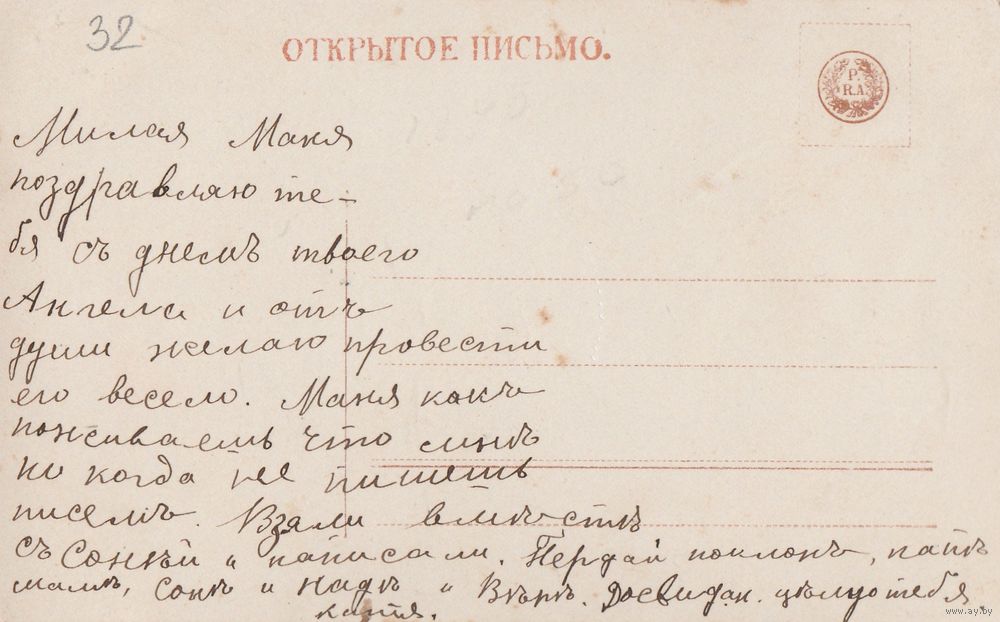 32
ОТКРЫТОЕ ПИСЬМО.
P.
R.A.
Милая Маня
поздравляю те-
бя съ днемъ твоего
Ангела и отъ
души желаю провести
его весело. Маня какъ
поживаешь что мнѣ
ни когда не пишешь
писемъ. Взяли вмѣстѣ
съ Сонкѣй и написали. Пердай поклонъ, папѣ
мамѣ, Сонѣ и Надѣ и Вѣрѣ. Досвидан. цѣлую тебя
катя.
www.ay.by